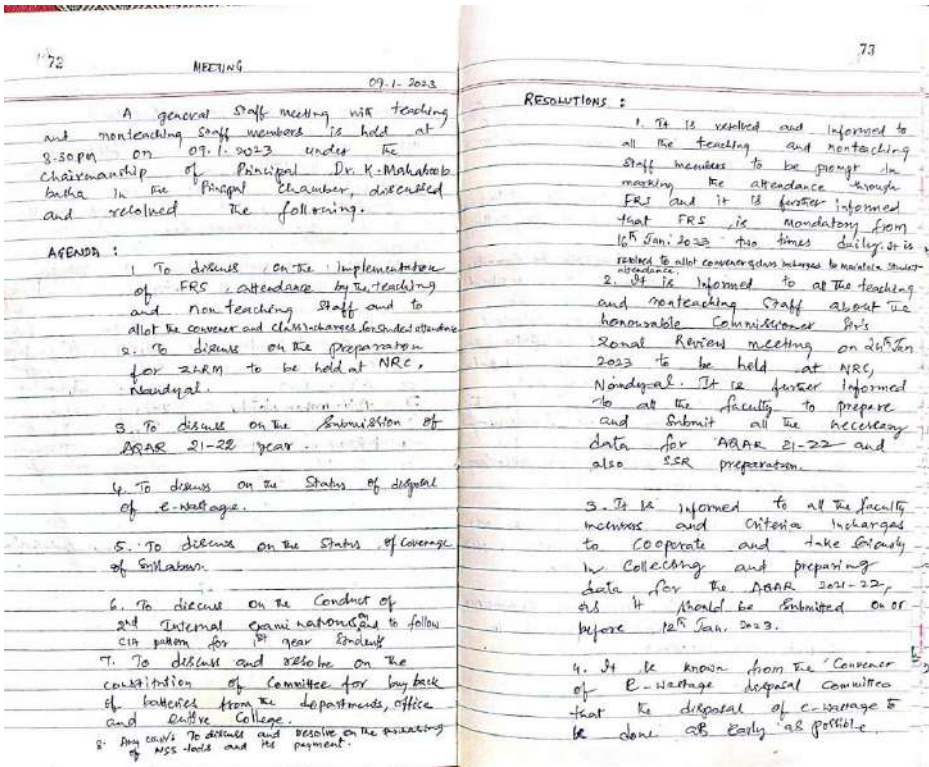 72
MEETING
09-1-2023
A general staff meeting with teaching
and nonteaching staff members is held at
3.30pm on 09.1.2023 under the
chairmanship of Principal Dr. K. Mahaboob
basha in the Principal chamber, discussed
and resolved the following.
AGENDA :
1. To discuss on the Implementation
of FRS, attendance by the teaching
and non teaching staff and to
allot the convener and class incharges for student attendance
2. To discuss on the preparation
for ZLRM to be held at NRC,
Nandyal.
3. To discuss on the submission of
AQAR 21-22 year.
4. To discuss on the status of disposal
of e-wastage.
5. To discuss on the status of coverage
of syllabus.
6. To discuss on the Conduct of
2nd Internal examinations and to follow
CIA pattern for 1st year students
7. To discuss and resolve on the
constitution of Committee for buy back
of batteries from the departments, office
and entire College.
8. Any To discuss and resolve on the
of NSS and its payment.
73
RESOLUTIONS :
1. It is resolved and informed to
all the teaching and nonteaching
staff members to be prompt in
marking the attendance through
FRS and it is further informed
that FRS, is mandatory from
16th Jan. 2023 two times daily. It is
resolved to allot convener & class incharges to maintain student
attendance.
2. It is informed to all the teaching
and nonteaching staff about the
honourable Commissioner Sir's
Zonal Review meeting on 24th Jan
2023 to be held at NRC,
Nandyal. It is further informed
to all the faculty to prepare
and submit all the necessary
data for AQAR 21-22 and
also SSR preparation.
3. It is informed to all the faculty
members and Criteria Incharges
to cooperate and take seriously
in collecting and preparing
data for the AQAR 2021-22,
as it should be submitted on or
before 12th Jan. 2023.
4. It is known from the Convener
of E-wastage disposal Committee
that the disposal of e-wastage to
be done as early as possible.